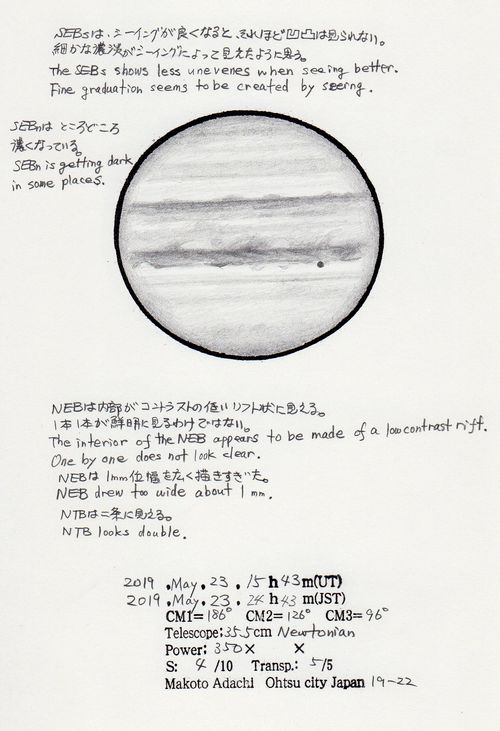 SEBsは、シーイングが良くなると、それほど凹凸は見られない。
細かな濃淡がシーイングによって見えたように思う。
The SEBs shows less unevenes when seeing better.
Fine graduation seems to be created by seeing.
SEBnは ところどころ
濃くなっている。
SEBn is getting dark
in some places.
NEBは内部がコントラストの低いリフト状に見える。
1本1本が鮮明に見るわけではない。
The interior of the NEB appears to be made of a low contrast rift.
One by one does not look clear.
NEBは 1mm位幅を広く描きすぎた。
NEB drew too wide about 1 mm.
NTBは二条に見える。
NTB looks double.
2019 .May. 23 . 15 h 43 m(UT)
2019 .May. 23 . 24 h 43 m(JST)
CM1= 186° CM2= 126° CM3= 96°
Telescope: 35.5 cm Newtonian
Power: 350 × ×
S: 4 /10 Transp.: 5/5
Makoto Adachi Ohtsu city Japan 19-22